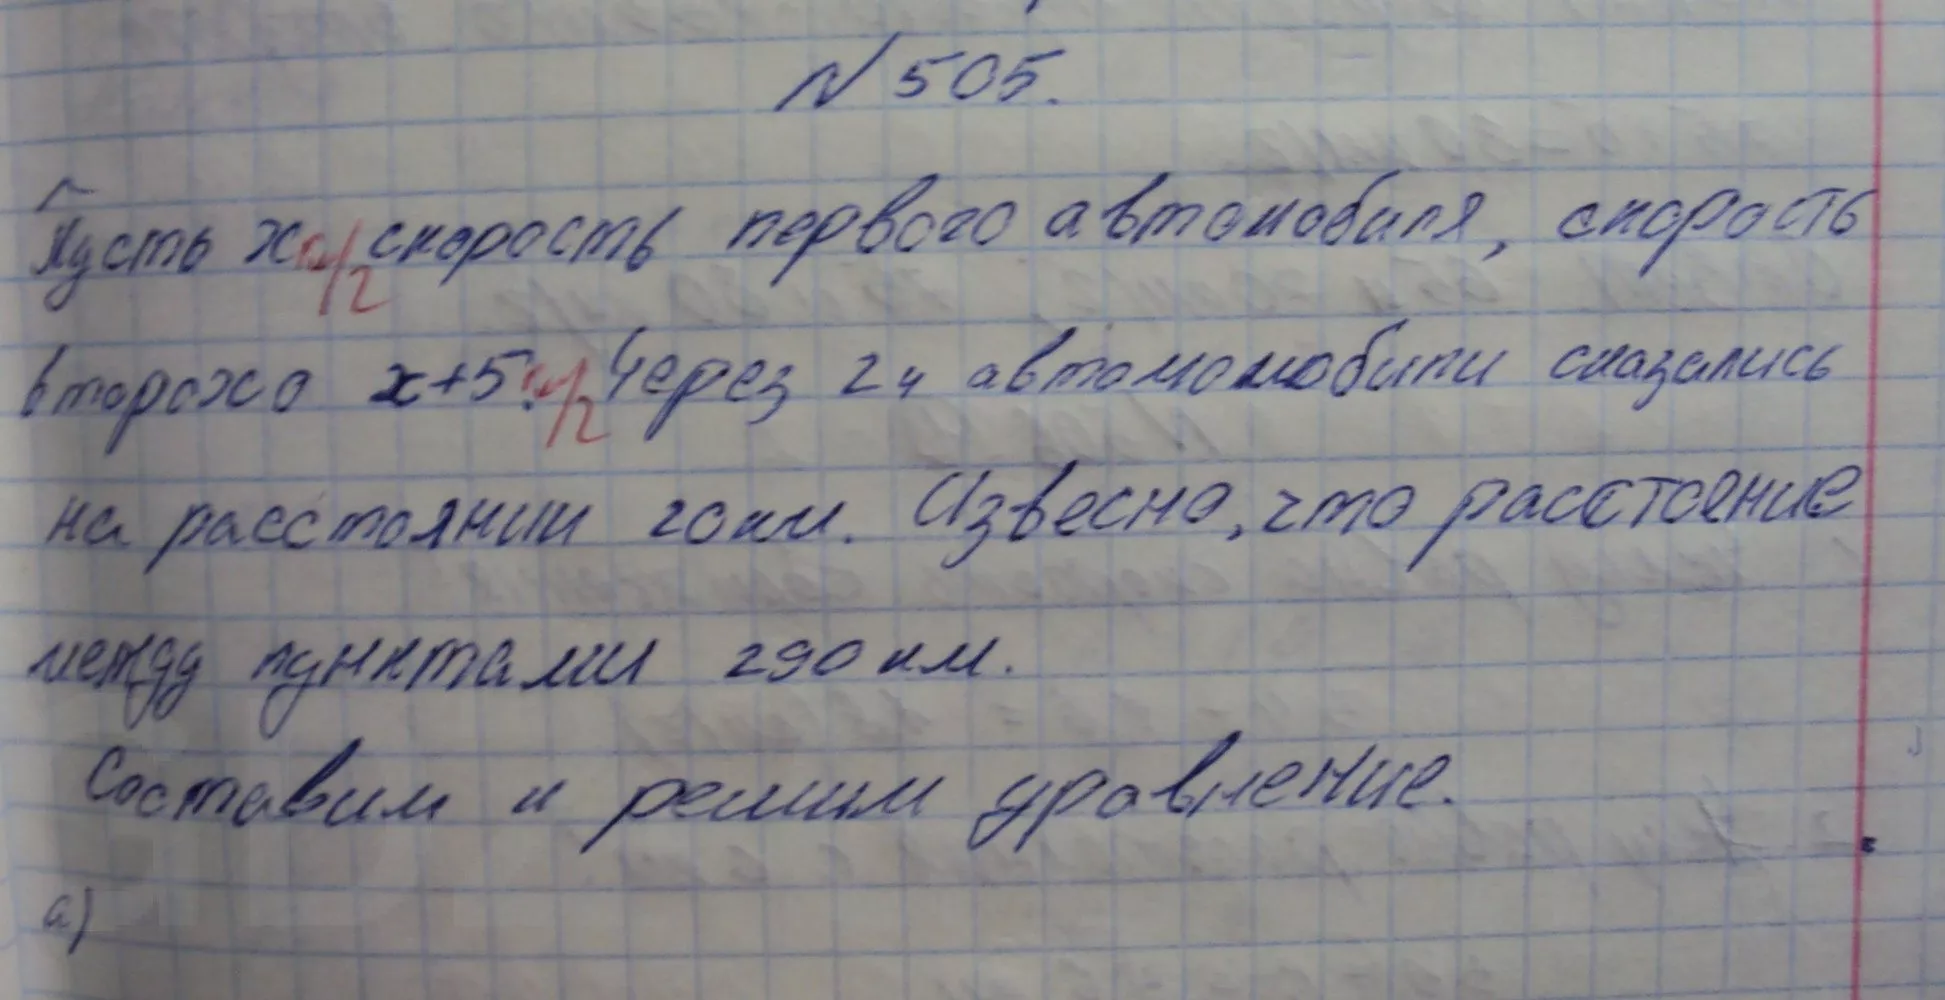 N 505.
Пусть х км/г скорость первого автомобиля, скорость
второхо х+5 км/г Через 2ч автомомобили сказались
на расстоянии 20 км. Извесно, что расстоение
между пунктами 290 км.
Составим и решим уравнение.
а)